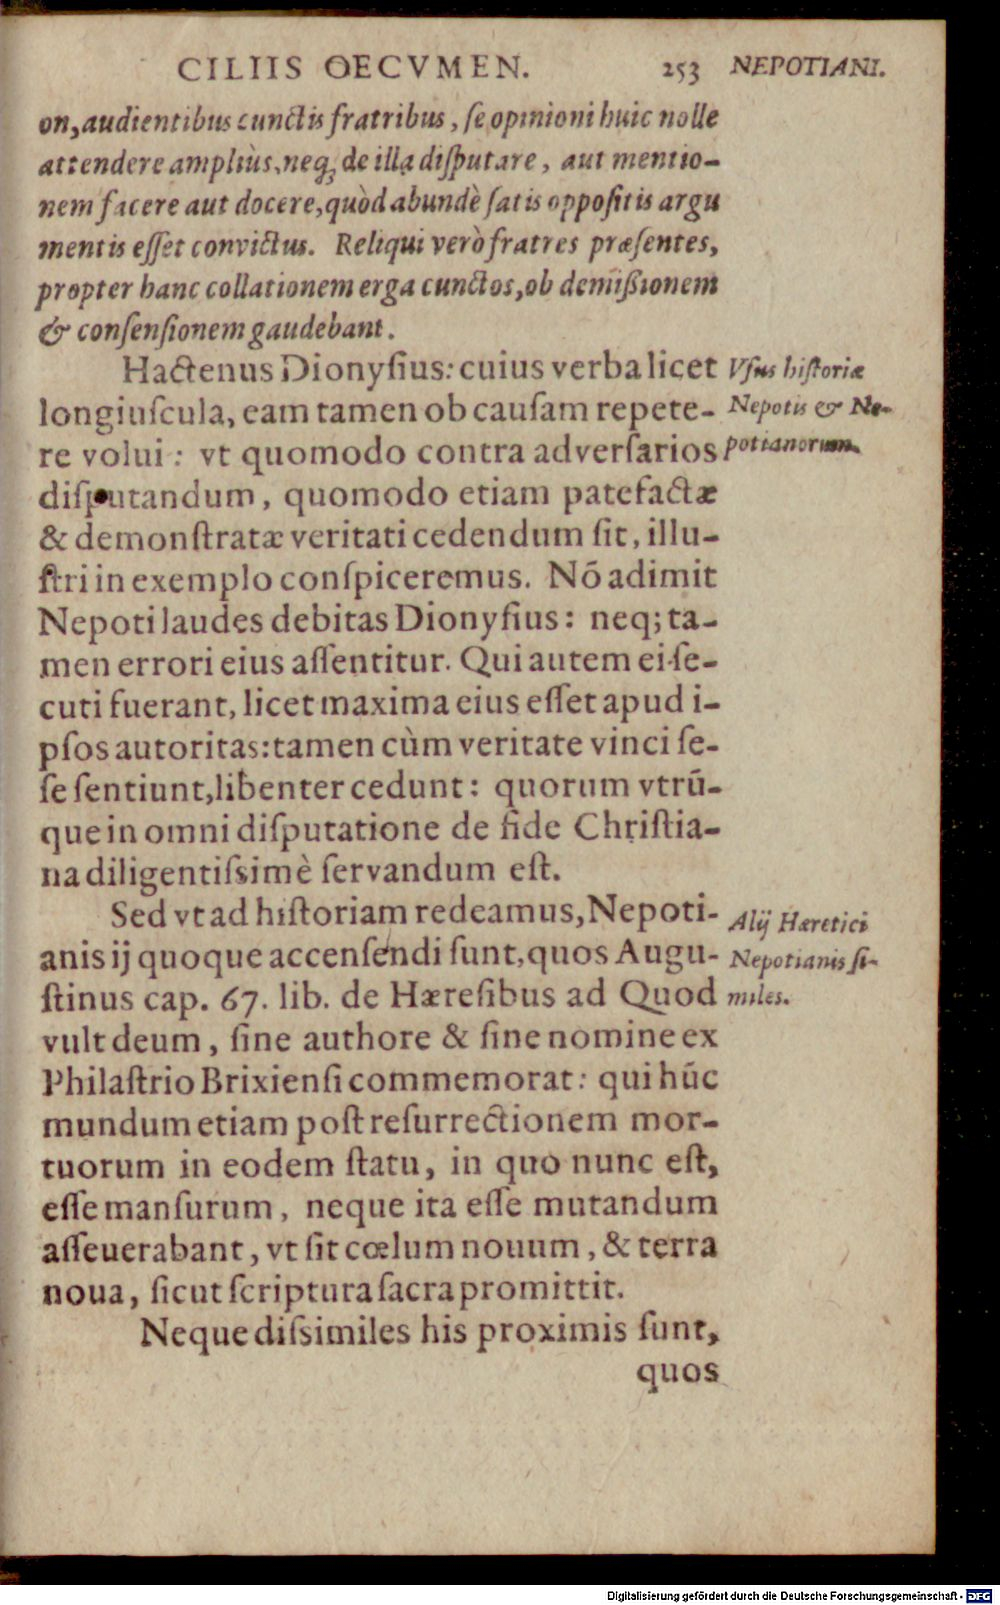 CILIIS OECVMEN. 253 NEPOTIANI.
on, audientibus cunctis fratribus, ſe opinioni huic nolle
attendere ampliùs, neq; de illa diſputare, aut mentio-
nem facere aut docere, quòd abundè ſatis oppoſitis argu
mentis eſſet convictus. Reliqui verò fratres præſentes,
propter hanc collationem erga cunctos, ob demiſsionem
& conſenſionem gaudebant.
Hactenus Dionyſius: cuius verba licet
longiuſcula, eam tamen ob cauſam repete-
re volui: vt quomodo contra adverſarios
diſputandum, quomodo etiam patefactæ
& demonſtratæ veritati cedendum ſit, illu-
ſtri in exemplo conſpiceremus. Nõ adimit
Nepoti laudes debitas Dionyſius: neq; ta-
men errori eius aſſentitur. Qui autem ei ſe-
cuti fuerant, licet maxima eius eſſet apud i-
pſos autoritas: tamen cùm veritate vinci ſe-
ſe ſentiunt, libenter cedunt: quorum vtrũ-
que in omni diſputatione de fide Chriſtia-
na diligentiſsimè ſervandum eſt.
Vſus hiſtoriæ
Nepotis & Ne-
potianorum.
Sed vt ad hiſtoriam redeamus, Nepoti-
anis ij quoque accenſendi ſunt, quos Augu-
ſtinus cap. 67. lib. de Hæreſibus ad Quod
vult deum, ſine authore & ſine nomine ex
Philaſtrio Brixienſi commemorat: qui hũc
mundum etiam poſt reſurrectionem mor-
tuorum in eodem ſtatu, in quo nunc eſt,
eſſe manſurum, neque ita eſſe mutandum
aſſeuerabant, vt ſit cœlum nouum, & terra
noua, ſicut ſcriptura ſacra promittit.
Alij Hæretici
Nepotianis ſi-
miles.
Neque diſsimiles his proximis ſunt,
quos
Digitalisierung gefördert durch die Deutsche Forschungsgemeinschaft - DFG